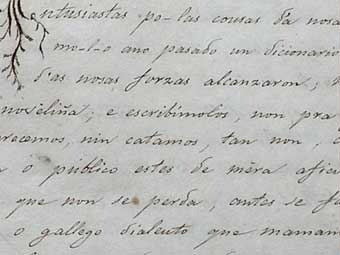 ntusiastas po-las cousas da nosa
mo-l-o ano pasado un dicionario
d'as nosas forzas alcanzaron;
noveliña; e escribimolos, non pra
recemos, nin catamos, tan non,
o pùblico estes de mèra afic
que non se perda, antes se f
o gallego dialeuto que maman